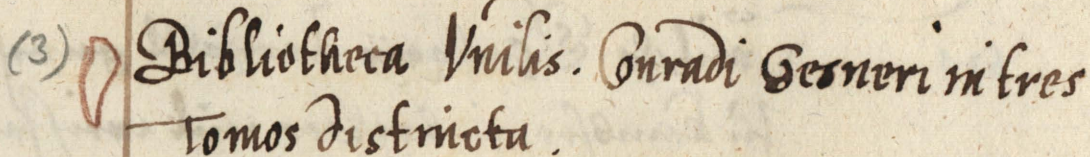 (3) Bibliotheca Vnilis. Conradi Gesneri in tres
Tomos distincta.